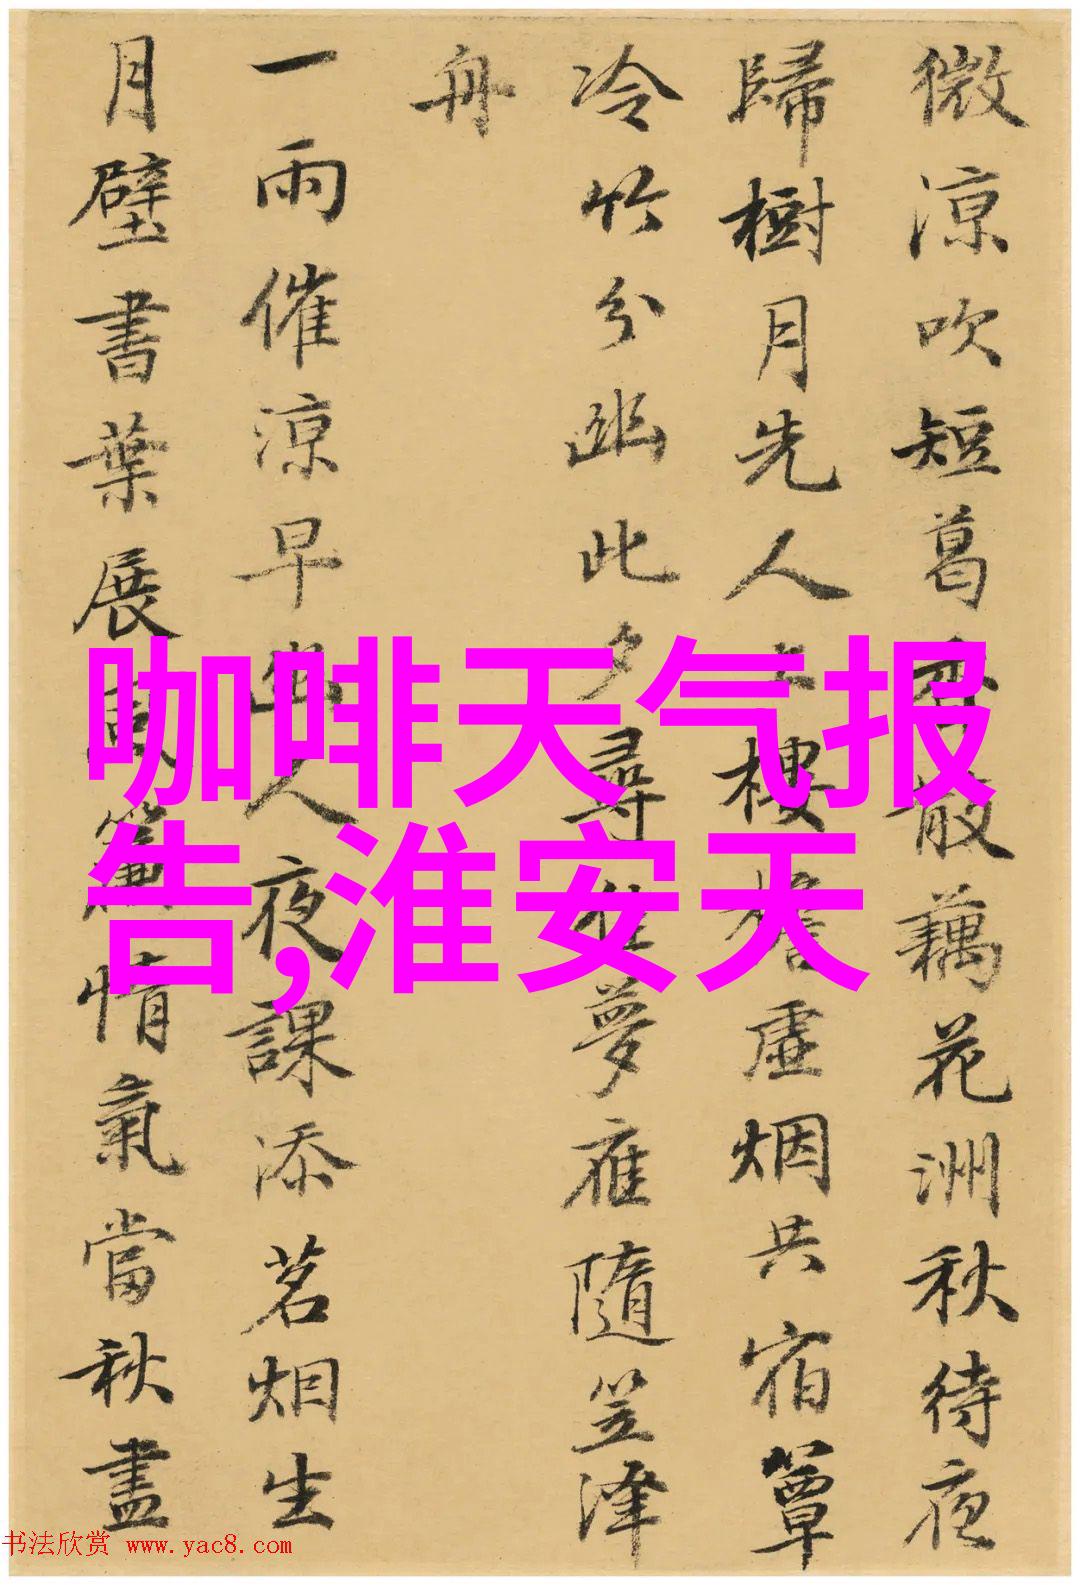 微涼吹短葛香散藕花洲秋待夜
歸樹月先人上樓檐虛烟共宿簟
冷竹分幽此夕尋夢隨笠澤
舟
一雨催涼早幽人夜課添茗烟生
月壁書葉展風簾惰氣當秋盡
咖啡天气报
告,淮安天
书法欣赏 www.yac8.com